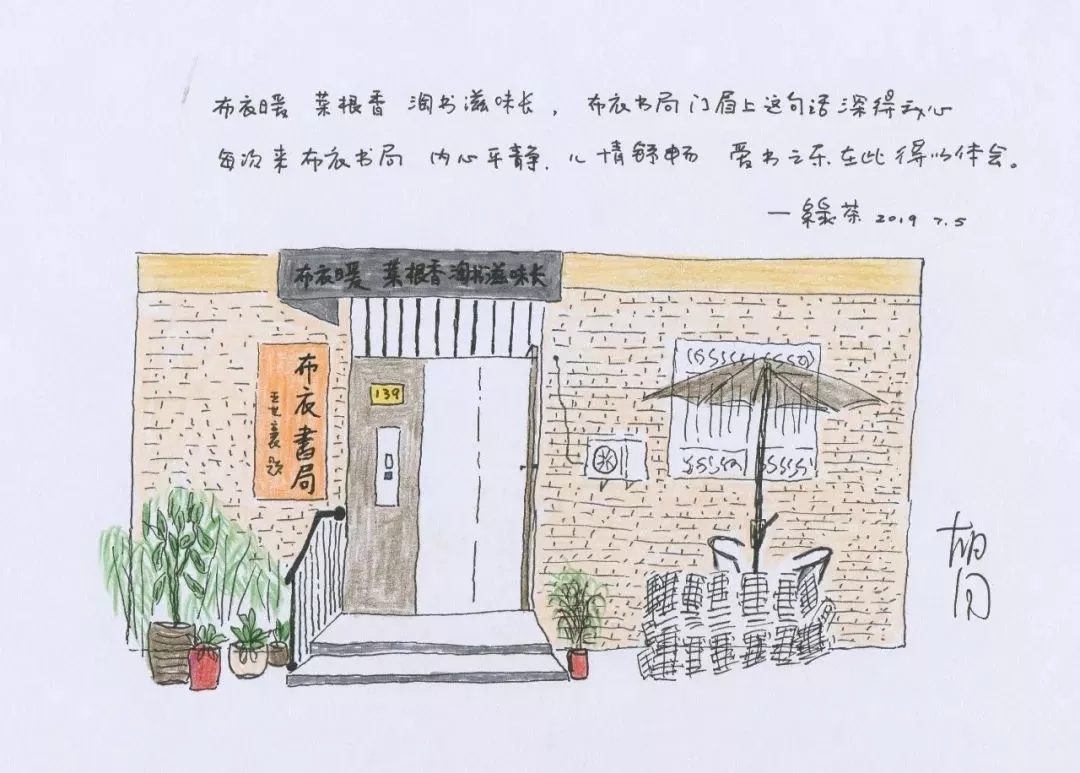 布衣暖 菜根香 淘书滋味长，布衣书局门眉上这句话深得我心
每次来布衣书局 内心平静、心情舒畅 爱书之乐在此得以体会。
—綠茶 2019 7.5
布衣暖 菜根香 淘书滋味长
布衣書局
王世襄题
139